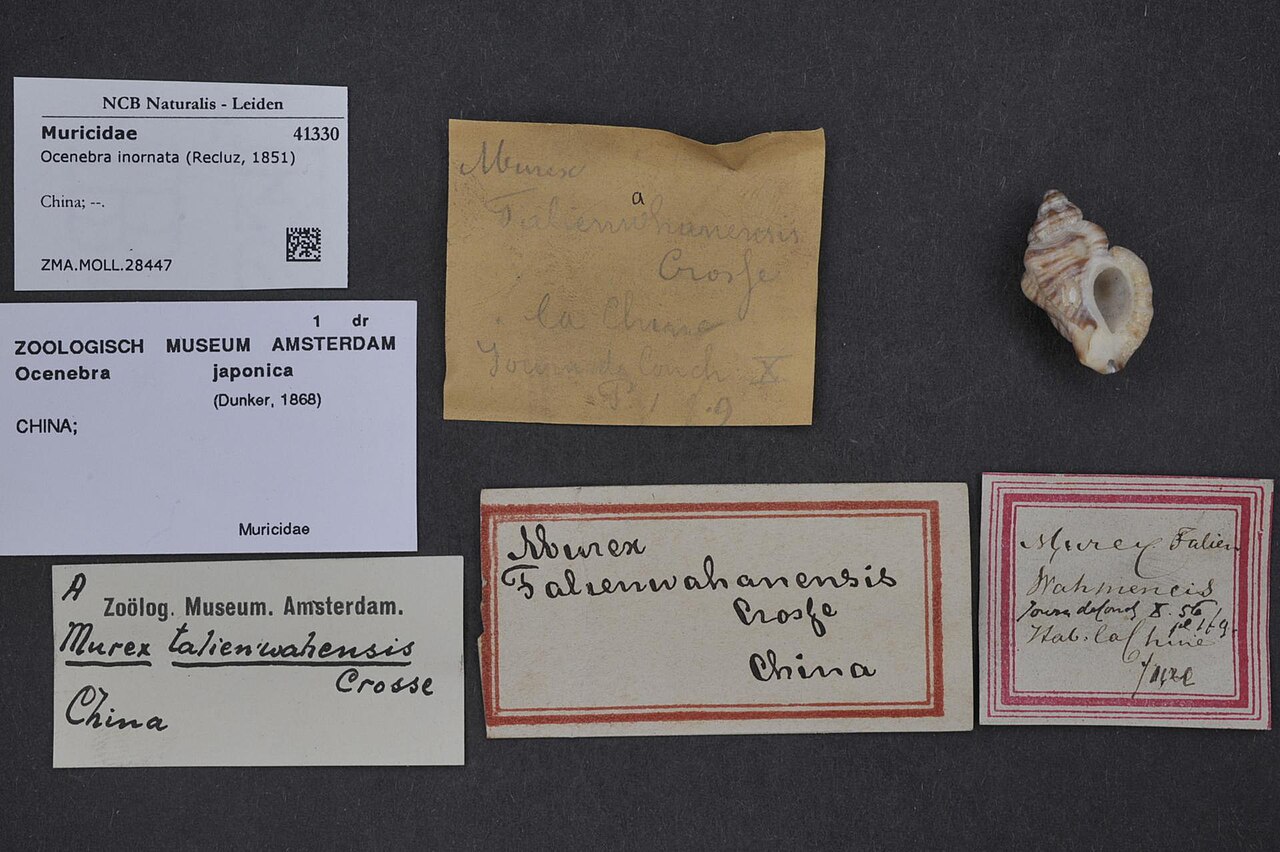 NCB Naturalis - Leiden
Muricidae 41330
Ocenebra inornata (Recluz, 1851)
China; --.
ZMA.MOLL.28447
1 dr
ZOOLOGISCH MUSEUM AMSTERDAM
Ocenebra japonica
(Dunker, 1868)
CHINA;
Muricidae
A
Zoölog. Museum. Amsterdam.
Murex talienwahensis
Crosse
China
Murex
a
Falienwhanensis
Crosse
la Chine
Journ de Conch X
P. 1 f. 9
Murex
Falienwahanensis
Crosse
China
Murex Falien
Wahmencis
Journ de Conch X. 56
pl 1 f 9.
Hab. la Chine